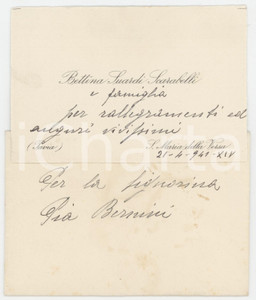 Bettina Suardi Scarabelli
e famiglia
per rallegramenti ed
auguri vivissimi
(Pavia) S. Maria della Versa
21-4-941-XIX
Per la Signorina
Pia Bernini